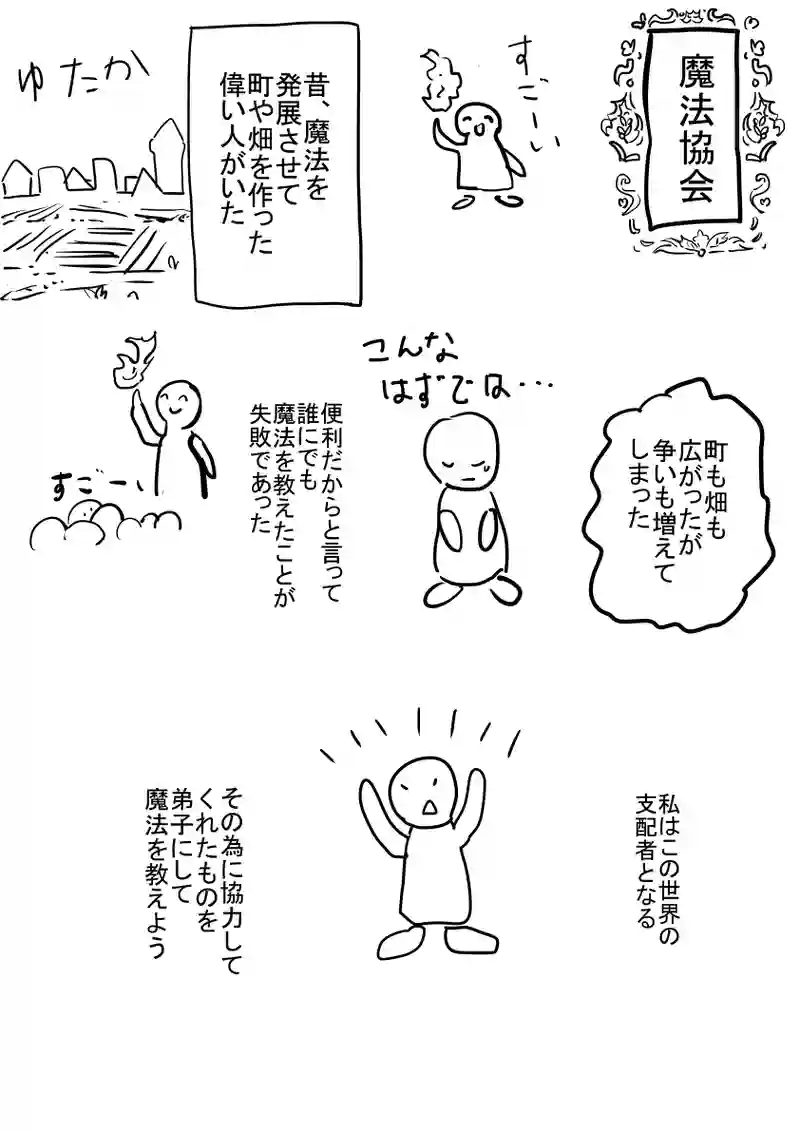 魔法協会
すごーい
昔、魔法を
発展させて
町や畑を作った
偉い人がいた
ゆたか
町も畑も
広がったが
争いも増えて
しまった
こんな
はずでは…
便利だからと言って
誰にでも
魔法を教えたことが
失敗であった
すごーい
私はこの世界の
支配者となる
その為に協力して
くれたものを
弟子にして
魔法を教えよう